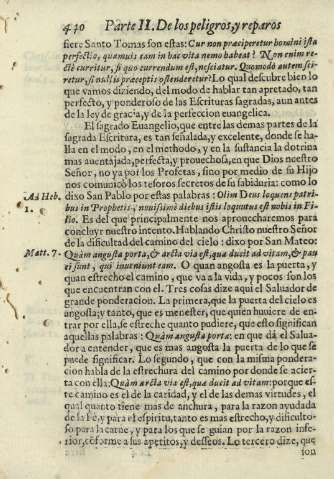 440 Parte II. De los peligros, y reparos
fiere Santo Tomas son estas: Cur non præciperetur homini ista
perfectio, quamuis eam in hac vita nemo habeat? Non enim re-
ctè curritur, si quo currendum est, nesciatur. Quomodò autem sci-
retur, si nullis præceptis ostenderetur? Lo qual descubre bien lo
que vamos diziendo, del modo de hablar tan apretado, tan
perfecto, y ponderoso de las Escrituras sagradas, aun antes
de la ley de gracia, y de la perfeccion euangelica.
El sagrado Euangelio, que entre las demas partes de la
sagrada Escritura, es tan señalada, y excelente, donde se ha-
lla en el modo, en el methodo, y en la sustancia la dotrina
mas auentajada, perfecta, y prouechosa, en que Dios nuestro
Señor, no ya por los Profetas, sino por medio de su Hijo
nos comunicò los tesoros secretos de su sabiduria: como lo
Ad Heb. 1.
dixo San Pablo por estas palabras: Olim Deus loquens patri-
bus in Prophetis, nouissimè diebus istis loquutus est nobis in Fi-
lio. Es del que principalmente nos aprouecharemos para
concluyr nuestro intento. Hablando Christo nuestro Señor
de la dificultad del camino del cielo: dixo por San Mateo:
Matt. 7.
Quàm angusta porta, & arcta via est, quæ ducit ad vitam, & pau
ci sunt, qui inueniunt eam. O quan angosta es la puerta, y
quan estrecho el camino, que va a la vida, y pocos son los
que encuentran con el. Tres cosas dize aqui el Saluador de
grande ponderacion. La primera, que la puerta del cielo es
angosta; y tanto, que es menester, que quien huuiere de en-
trar por ella, se estreche quanto pudiere, que esto significan
aquellas palabras: Quàm angusta porta: en que dà el Salua-
dor a entender, que es mas angosta la puerta de lo que se
puede significar. Lo segundo, que con la misma pondera-
cion habla de la estrechura del camino por donde se acier-
ta con ella: Quàm arcta via est, quæ ducit ad vitam: porque es-
te camino es el de la caridad, y el de las demas virtudes, el
qual quanto tiene mas de anchura, para la razon ayudada
de la Fè, y para el espiritu, tanto es mas estrecho, y dificulto-
so para la carne, y para los que se guian por la razon infe-
rior, cõforme a sus apetitos, y desseos. Lo tercero dize, que
son